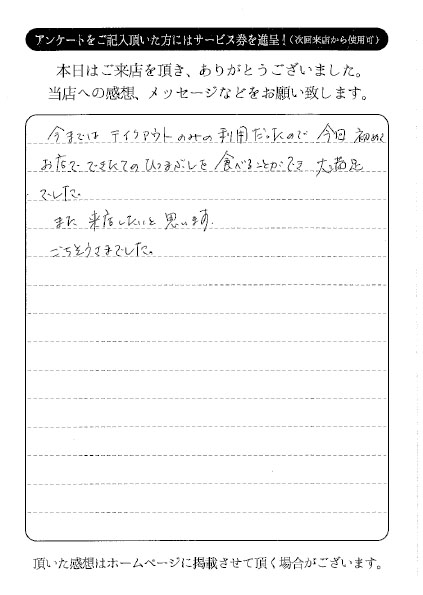 アンケートをご記入頂いた方にはサービス券を進呈!(次回来店から使用可)
本日はご来店を頂き、ありがとうございました。
当店への感想、メッセージなどをお願い致します。
今までは テイクアウトのみの利用だったので 今回 初めて
お店で できたての ひつまぶしを 食べることができ 大満足
でした。
また 来店したいと 思います.
ごちそうさまでした。
頂いた感想はホームページに掲載させて頂く場合がございます。